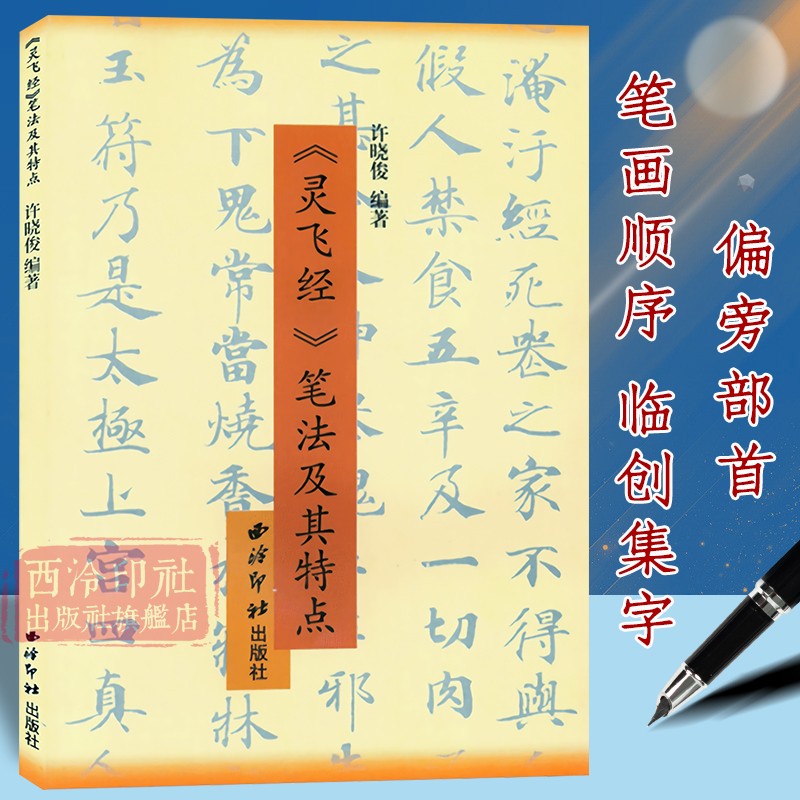 《灵飞经》笔法及其特点
许晓俊 编著
西泠印社出版社
《灵飞经》笔法及其特点
许晓俊 编著
西泠印社出版社
淹汙經死喪之家不得與
假人禁食五辛及一切肉
之其
邪
為下鬼常當燒香
玉符乃是太極上宮四真人
西泠印社
出版社旗艦店
笔画顺序 临创集字
偏旁部首